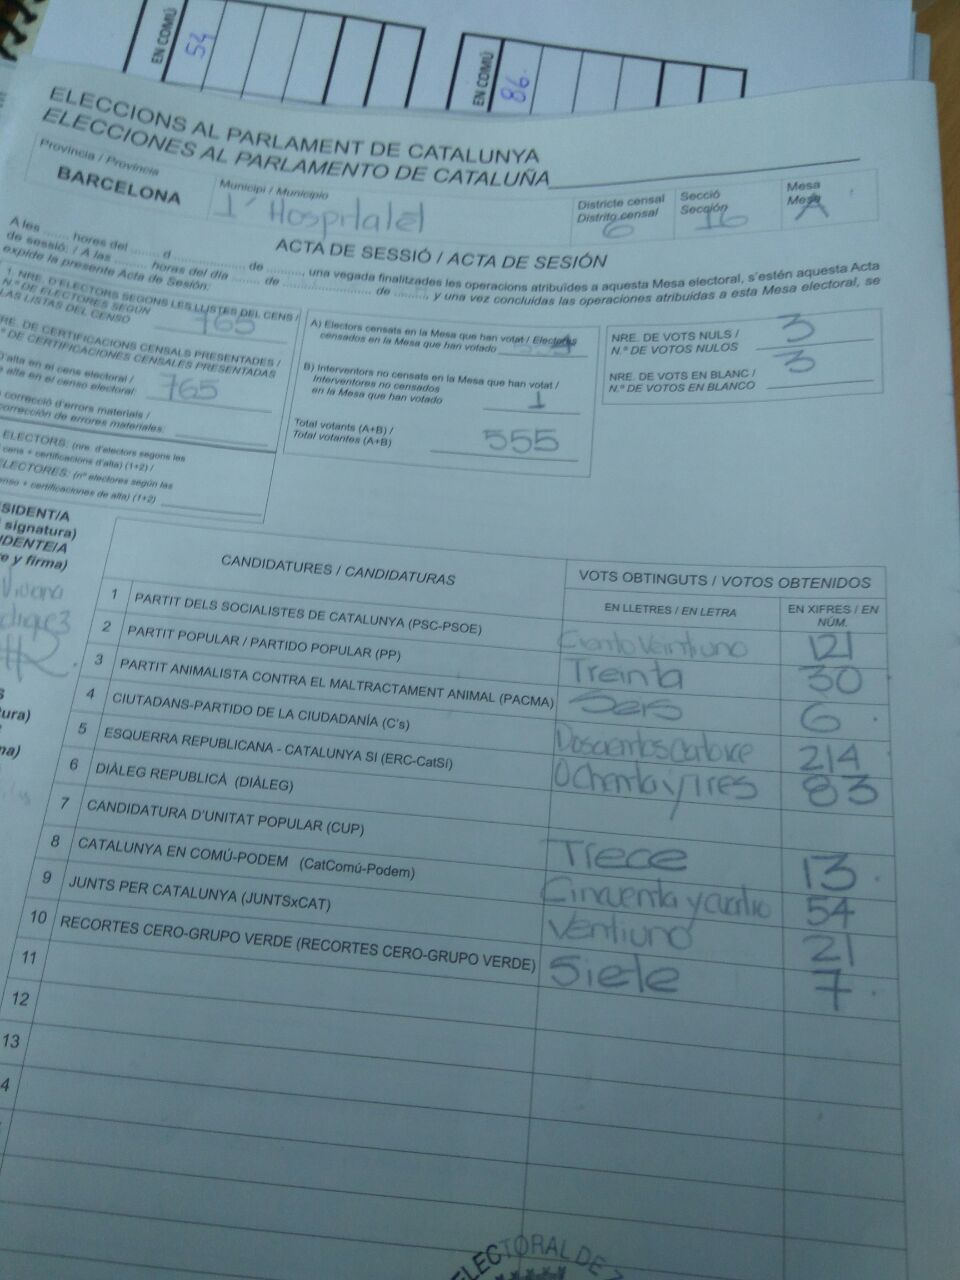 EN COMÚ 54
EN COMÚ 86
ELECCIONS AL PARLAMENT DE CATALUNYA
ELECCIONES AL PARLAMENTO DE CATALUÑA
Província / Provincia
BARCELONA
Municipi / Municipio
l'Hospitalet
Districte censal
Distrito censal
6
Secció
Sección
16
Mesa
Mesa
A
ACTA DE SESSIÓ / ACTA DE SESIÓN
A les ....... hores del ....... d ................ de ........., una vegada finalitzades les operacions atribuïdes a aquesta Mesa electoral, s'estén aquesta Acta
de sessió: / A las ....... horas del día ....... de ................ de ........., y una vez concluidas las operaciones atribuidas a esta Mesa electoral, se
expide la presente Acta de Sesión:
1. NRE. D'ELECTORS SEGONS LES LLISTES DEL CENS /
N.º DE ELECTORES SEGÚN
LAS LISTAS DEL CENSO 765
NRE. DE CERTIFICACIONS CENSALS PRESENTADES /
N.º DE CERTIFICACIONES CENSALES PRESENTADAS
alta en el cens electoral /
alta en el censo electoral: 765
correcció d'errors materials /
corrección de errores materiales:
ELECTORS: (nre. d'electors segons les
cens + certificacions d'alta) (1+2) /
ELECTORES: (nº electores según las
censo + certificaciones de alta) (1+2)
A) Electors censats en la Mesa que han votat / Electores
censados en la Mesa que han votado
B) Interventors no censats en la Mesa que han votat /
Interventores no censados
en la Mesa que han votado 1
Total votants (A+B) /
Total votantes (A+B) 555
NRE. DE VOTS NULS /
N.º DE VOTOS NULOS 3
NRE. DE VOTS EN BLANC /
N.º DE VOTOS EN BLANCO 3
PRESIDENT/A
signatura)
PRESIDENTE/A
e y firma)
CANDIDATURES / CANDIDATURAS
VOTS OBTINGUTS / VOTOS OBTENIDOS
EN LLETRES / EN LETRA
EN XIFRES / EN
NÚM.
1 PARTIT DELS SOCIALISTES DE CATALUNYA (PSC-PSOE) Ciento Veintiuno 121
2 PARTIT POPULAR / PARTIDO POPULAR (PP) Treinta 30
3 PARTIT ANIMALISTA CONTRA EL MALTRACTAMENT ANIMAL (PACMA) Seis 6
4 CIUTADANS-PARTIDO DE LA CIUDADANÍA (C's) Doscientos catorce 214
5 ESQUERRA REPUBLICANA - CATALUNYA SÍ (ERC-CatSí) Ochenta y tres 83
6 DIÀLEG REPUBLICÀ (DIÀLEG)
7 CANDIDATURA D'UNITAT POPULAR (CUP) Trece 13
8 CATALUNYA EN COMÚ-PODEM (CatComú-Podem) Cincuenta y cuatro 54
9 JUNTS PER CATALUNYA (JUNTSxCAT) Ventiuno 21
10 RECORTES CERO-GRUPO VERDE (RECORTES CERO-GRUPO VERDE) Siete 7
11
12
13
4
ELECTORAL DE Z